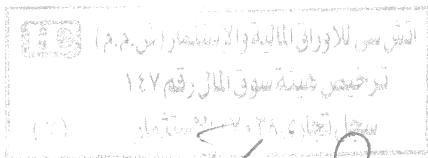 اتش سى للاوراق المالية والاستثمار (ش.م.م)
ترخيص هيئة سوق المال رقم ١٤٧
سجل تجارى الاستثمار